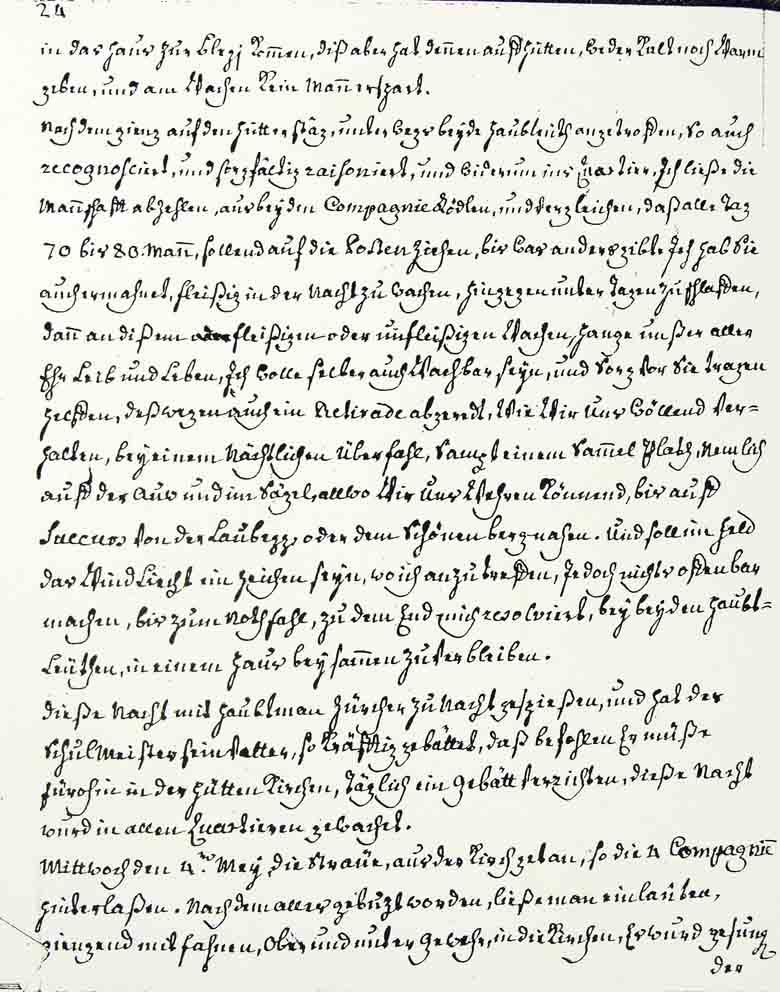 24
in das Haus zur Blegi kom̄en, diß aber hat dennen auf Hütten, weder Kalt noch Warm
geben, und am Wachen Kein Man̄ erspart.
Nachdem gieng auf den Hütter stäg, unter wegs beyde Haubtleüth angetroffen, So auch
recognosciert, und sorgfältig raisoniert, und widerum ins Quartier, Ich ließe die
Man̄schafft abzehlen, aus beyden Compagnie Rödlen, und verglichen, daß alle Tag
70 bis 80. Man̄, sollend auf die Posten Ziehen, bis was anders gibt. Ich hab Sie
auch ermahnet, fleißig in der Nacht zu wachen, hingegen unter Tagen zu schlaffen,
dan̄ an dißem fleißigen oder unfleißigen Wachen, hange unßer aller
Ehr Leib und Leben, Ich wolle selber auch Wachbar seyn, und Sorg vor Sie tragen
helffen, deßwegen auch ein Retirade abgeredt, Wie Wir Uns wöllend Ver=
halten, bey einem Nächtlichen Überfahl, Sampt einem Sam̄el Platz, Nemlich
auff der Auw und im Sägel, allwo Wir Uns Wehren Könnend, bis auff
Succurs Von der Laubegg, oder dem Schönenberg nahen. Und soll im Feld
das Wind Liecht ein Zeichen seyn, wo ich anzutreffen, Jedoch nichts offenbar
machen, bis zum Nothfahl, zu dem End mich resolviert, bey beyden Haubt=
Leüthen, in einem Haus beysam̄en zu Verbleiben.
dieße Nacht mit Haubtman Zürcher zu Nacht gespießen, und hat der
Schulmeister sein Vetter, so Kräfftig gebättet, daß befohlen Er müße
fürohin in der Hütten Kirchen, Täglich ein Gebätt Verrichten, dieße Nacht
wurd in allen Quartieren gewachet.
Mittwoch den 4.ten Mey, die Straüe, aus der Kirch getan, so die 4 Compagnie
hinterlaßen. Nachdem alles gebutzt worden, ließe man einlaüten,
giengend mit Fahnen, Ober und unter Gewehr, in die Kirchen, Es wurd gesung
der